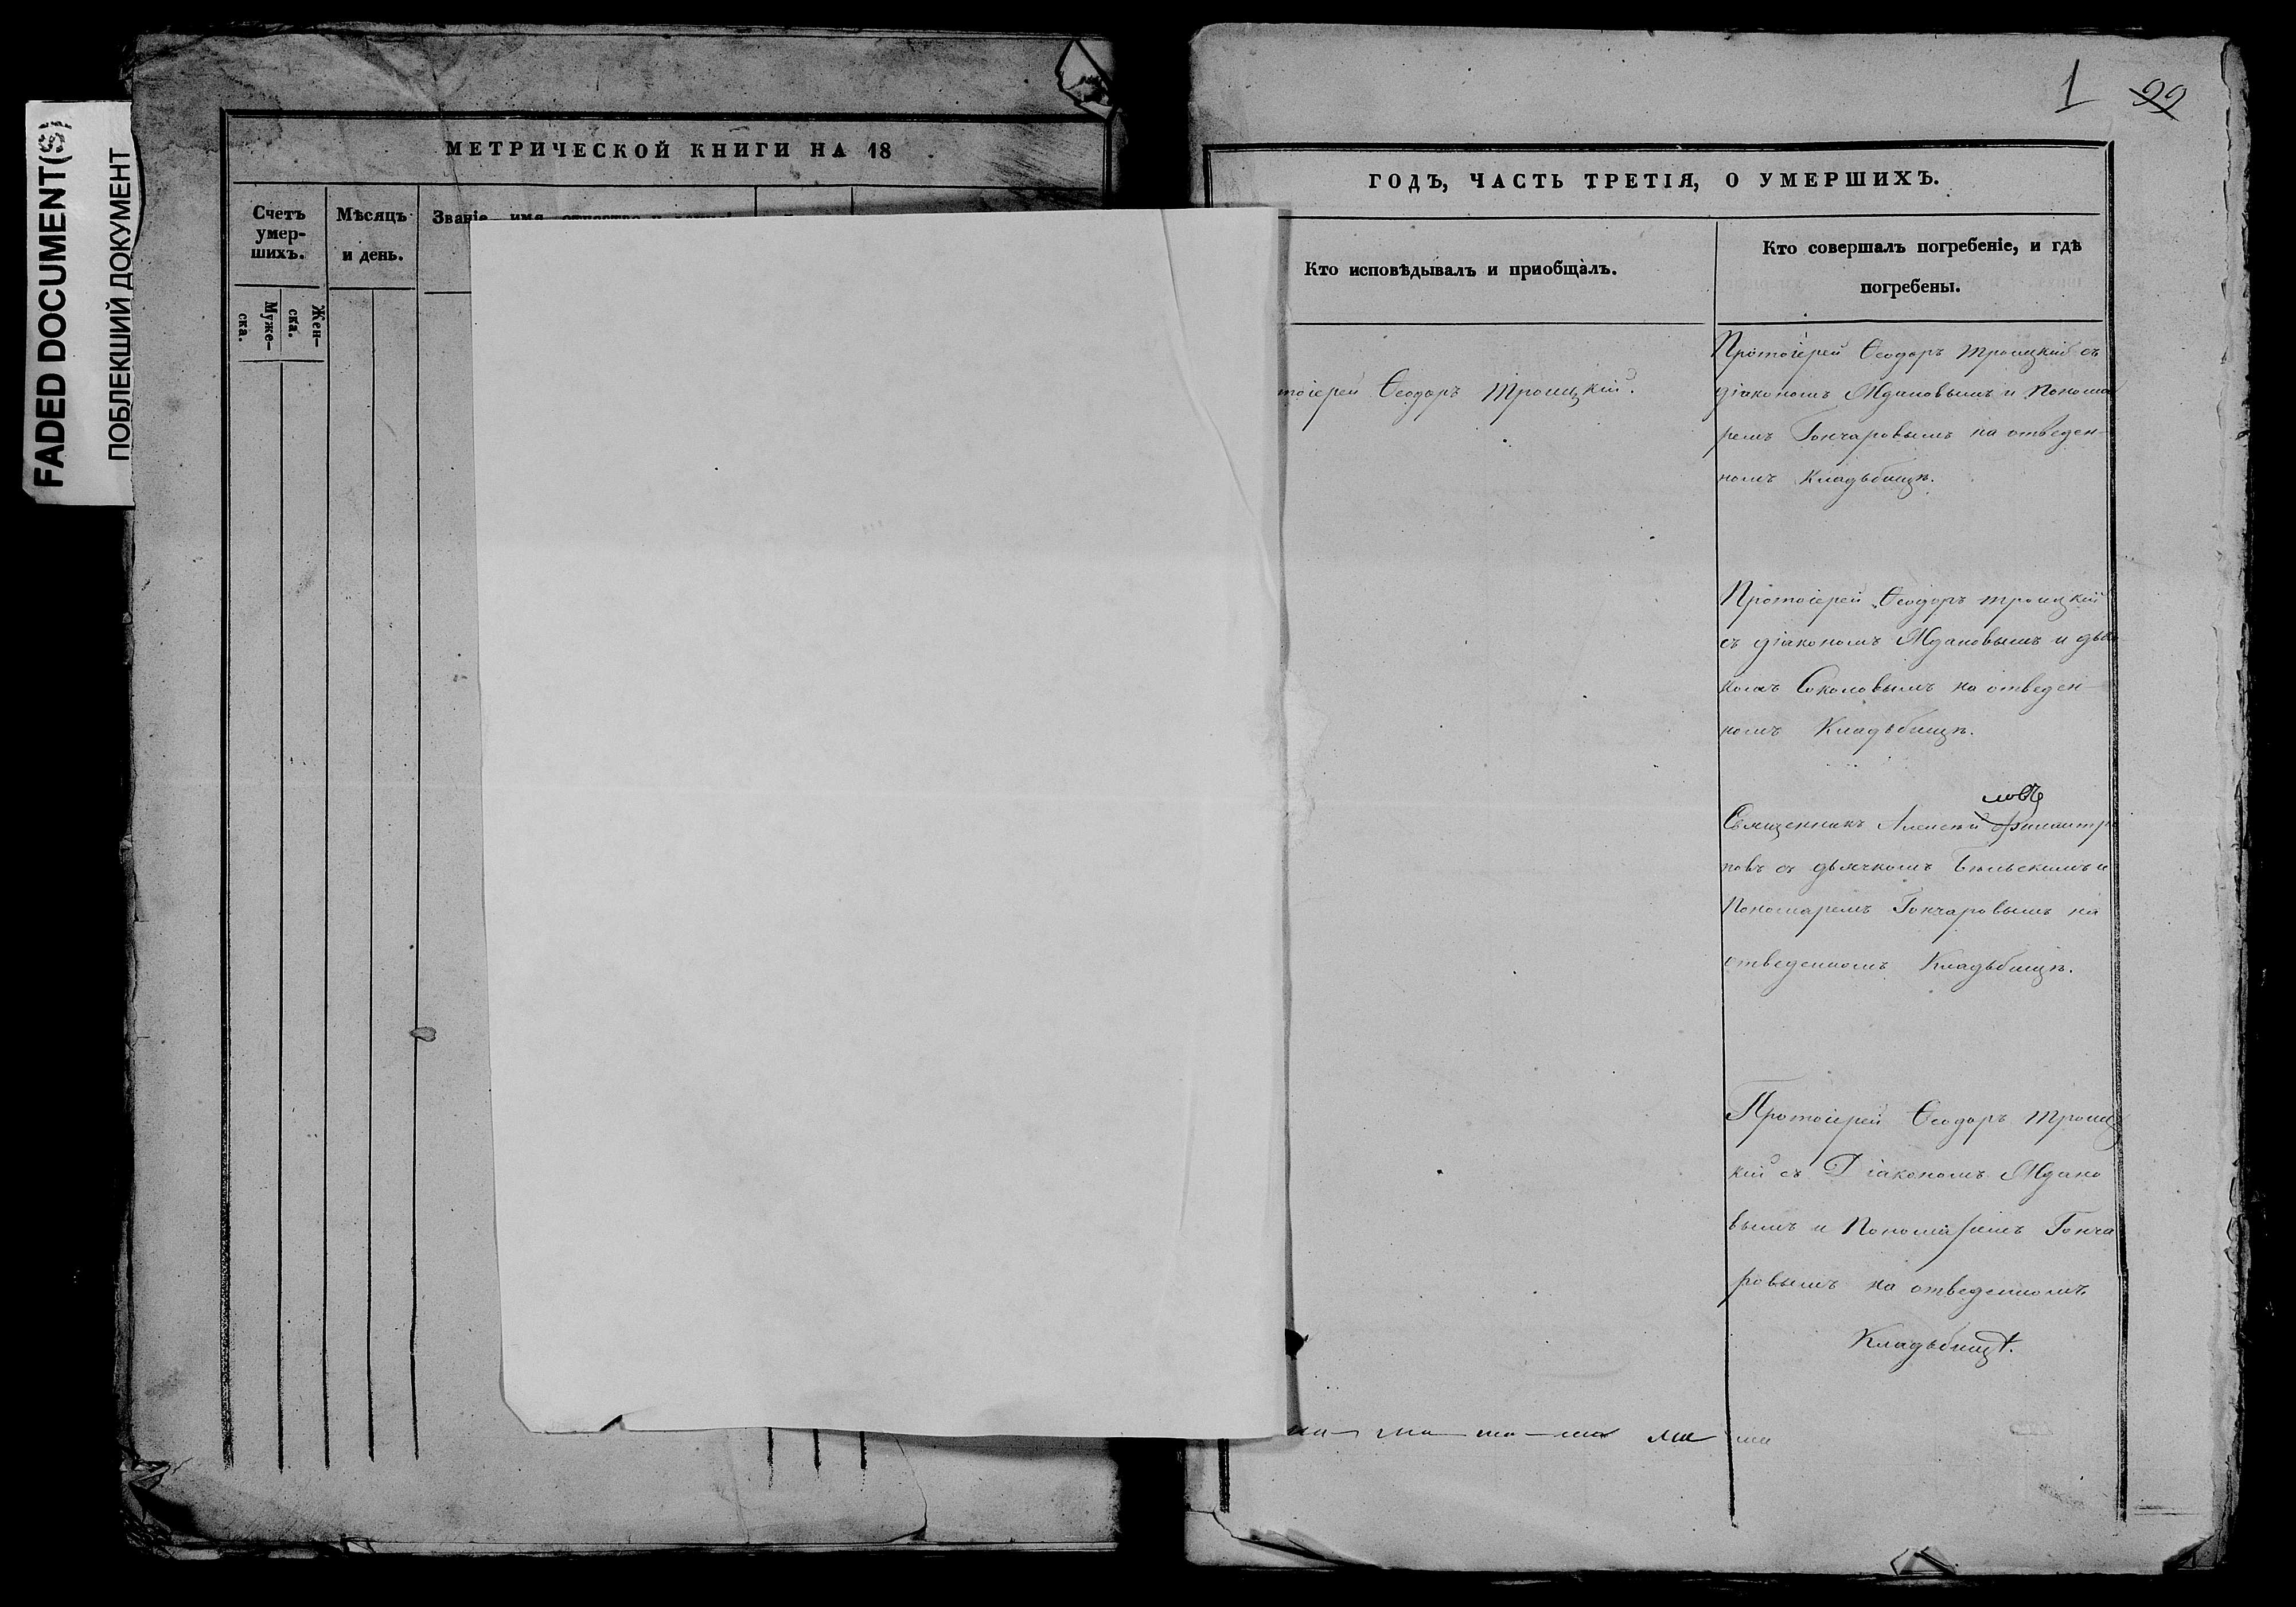 FADED DOCUMENT(S)
ПОБЛЕКШИЙ ДОКУМЕНТ
МЕТРИЧЕСКОЙ КНИГИ НА 18
Счетъ
умер-
шихъ.
Муже-
ска.
Жен-
ска.
Мѣсяцъ
и день.
Званіе
1 99
ГОДЪ, ЧАСТЬ ТРЕТІЯ, О УМЕРШИХЪ.
Кто исповѣдывалъ и приобщалъ.
тоіерей Ѳеодоръ Троицкій.
Кто совершалъ погребеніе, и гдѣ
погребены.
Протоіерей Ѳеодоръ Троицкій съ
діакономъ Ждановымъ и Понома
ремъ Гончаровымъ на отведен-
номъ Кладьбищѣ.
Протоіерей Ѳеодоръ Троицкій
съ діакономъ Ждановымъ и дья
комъ Соколовымъ на отведен-
номъ Кладьбищѣ.
Священникъ Алексѣй
повъ съ дьячкомъ Бѣльскимъ и
Пономаремъ Гончаровымъ на
отведенномъ Кладьбищѣ.
Протоіерей Ѳеодоръ Троиц
кій съ Діакономъ Ждано
вымъ и Пономаремъ Гонча
ровымъ на отведенномъ
Кладьбищѣ.